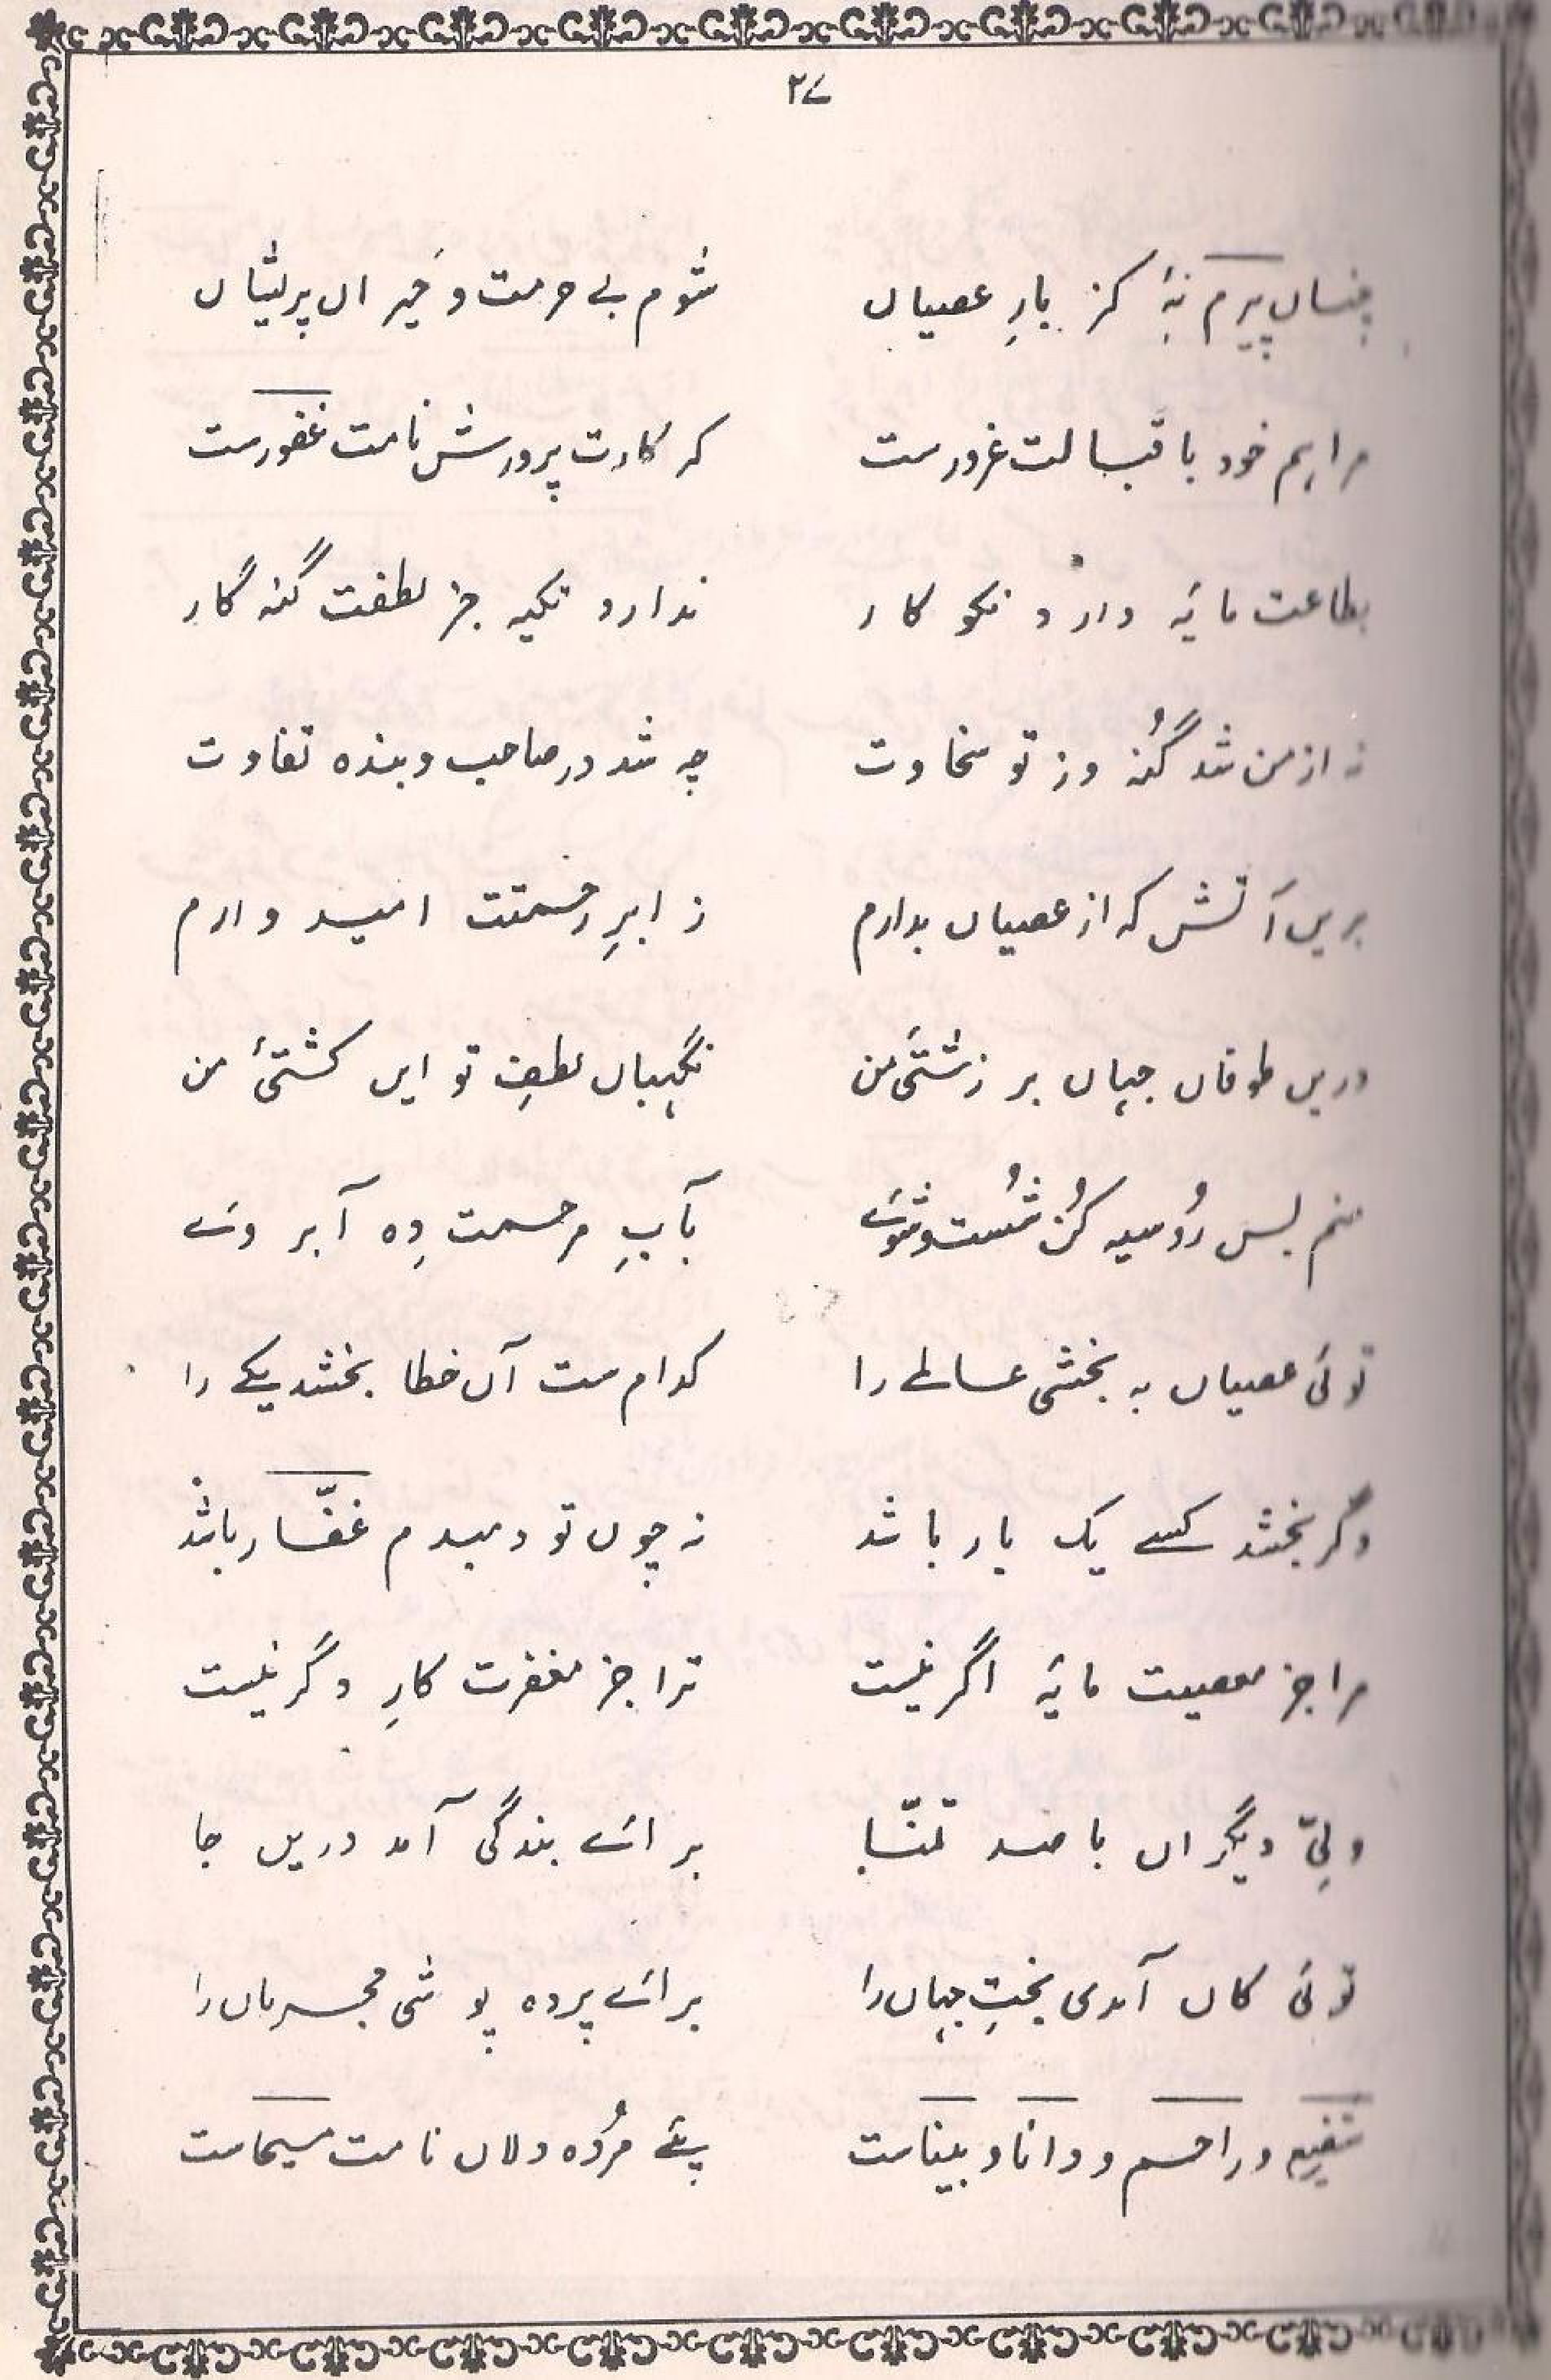 ۲۷
چنساں پیرم نۂ کز بارِ عصیاں شوم بے حرمت و خیراں پریشاں
مرا ہم خود باقبالت غرورست کہ کارت پرورش نامت غفورست
بطاعت مایۂ دارد نکو کار ندارد تکیہ جز لطفت گنہ گار
نہ از من شد گنُہ وز تو سخاوت چہ شد در صاحب و بندہ تفاوت
بریں آتش کہ از عصیاں بدارم ز ابرِ رحمتت امید وارم
دریں طوفاں جہاں بر زشتیٔ من نگہباں لطفِ تو ایں کشتیٔ من
منم بس رُوسیہ کُن شُست و شوئے بآبِ مرحمت دِہ آبروئے
توئی عصیاں بہ بخشی عسالمے را کدام ست آں خطا بخشد یکے را
وگر بخشد کسے یک بار باشد نہ چوں تو دمبدم غفّار باشد
مرا جز معصیت مایۂ اگر نیست ترا جز مغفرت کارِ دگر نیست
ولِیّ دیگراں با صد تمنّا برائے بندگی آمد دریں جا
توئی کاں آمدی بختِ جہاں را برائے پردہ پوشی مجرماں را
شفیع و راحم و دانا و بیناست پئے مُردہ دلاں نامت مسیحاست